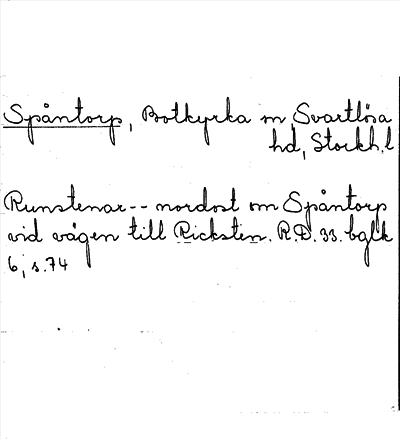 Spåntorp, Botkyrka sn Svartlösa
hd, Stockh.l
Runstenar-- nordost om Spåntorp
vid vägen till Ricksten. R.D. 33. bglk
6, s. 74